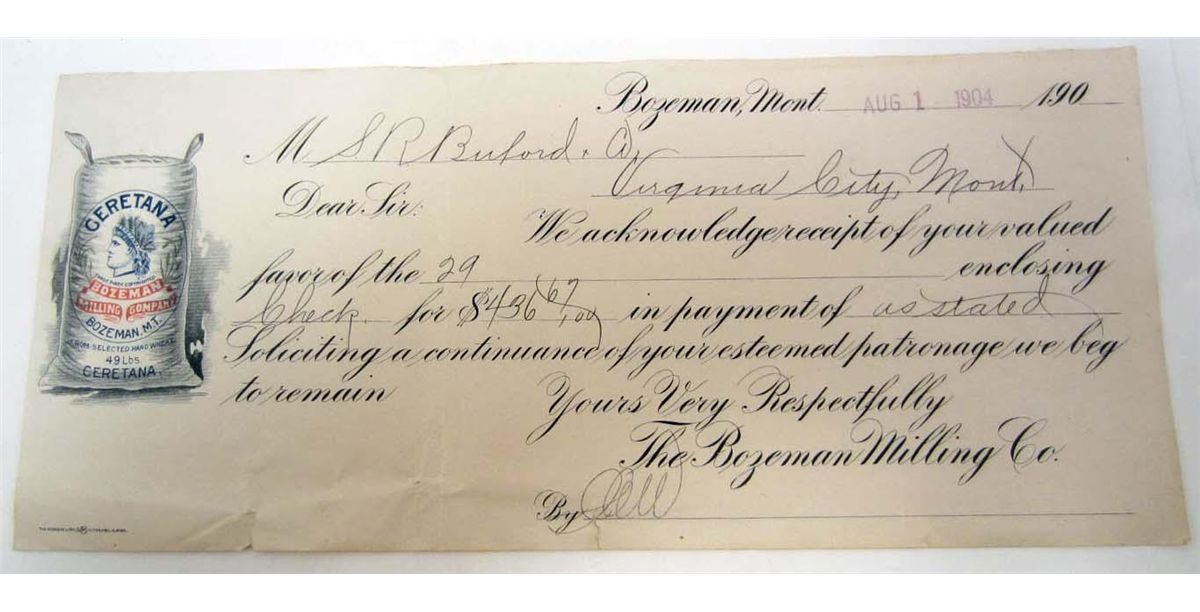 Bozeman, Mont. AUG 1 - 1904 190
M S R Buford & Co,
Virginia City, Mont,
Dear Sir:
We acknowledge receipt of your valued
favor of the 29 enclosing
Check for $436 67/100 in payment of as stated
Soliciting a continuance of your esteemed patronage we beg
to remain
Yours Very Respectfully
The Bozeman Milling Co.
By
CERETANA
BOZEMAN
MILLING COMPANY
BOZEMAN, M.T.
FROM SELECTED HARD WHEAT
49 Lbs.
CERETANA.